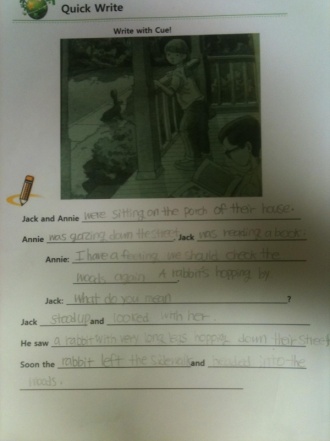 Quick Write
Write with Cue!
Jack and Annie were sitting on the porch of their house.
Annie was gazing down the street, Jack was reading a book.
Annie: I have a feeling we should check the
woods again. A rabbit's hopping by
Jack: What do you mean ?
Jack stood up and looked with her.
He saw a rabbit with very long legs hopping down their street
Soon the rabbit left the sidewalk and headed into the
woods.